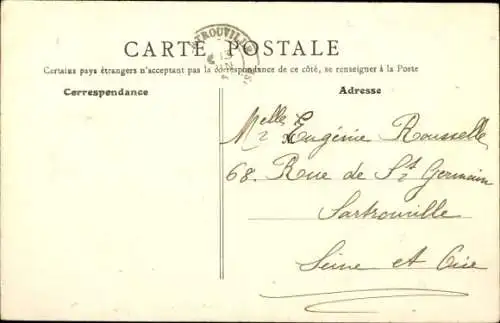 CARTE POSTALE
Certains pays étrangers n'acceptant pas la correspondance de ce côté, se renseigner à la Poste
Correspondance
Adresse
Melle Eugénie Rousselle
68. Rue de St Germain
Sartrouville
Seine et Oise